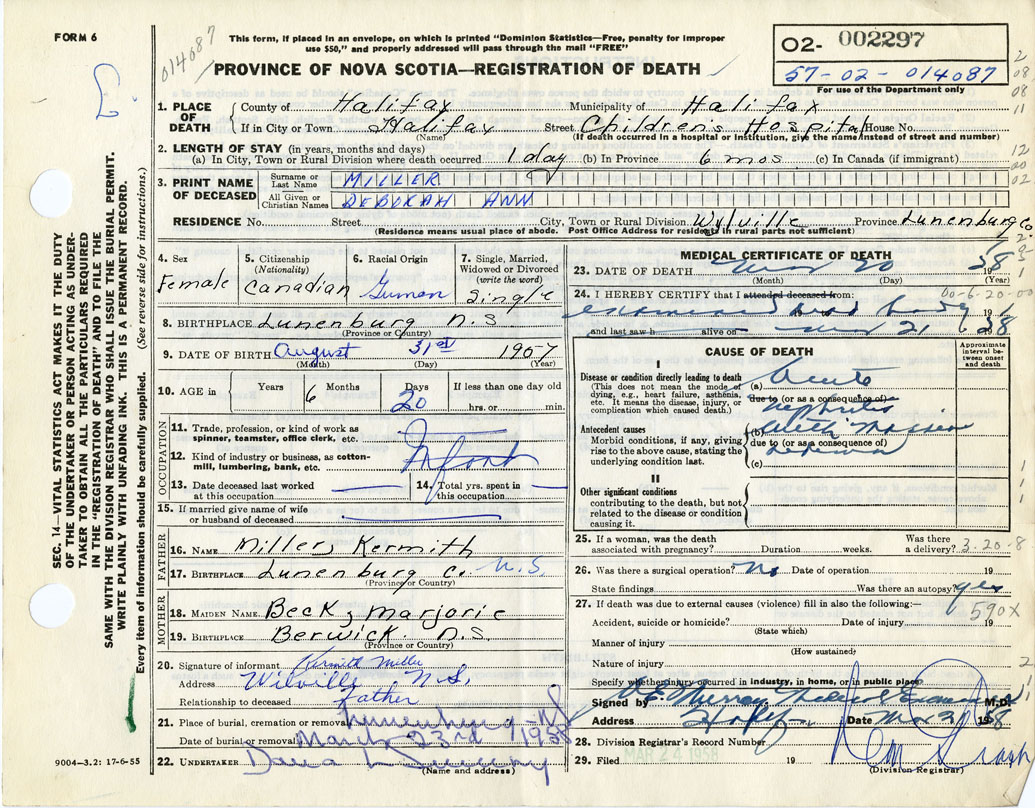 FORM 6
014087
This form, if placed in an envelope, on which is printed "Dominion Statistics—Free, penalty for improper
use $50," and properly addressed will pass through the mail "FREE"
PROVINCE OF NOVA SCOTIA—REGISTRATION OF DEATH
O2- 002297
57-02-014087
For use of the Department only
SEC. 14—VITAL STATISTICS ACT MAKES IT THE DUTY
OF THE UNDERTAKER OR PERSON ACTING AS UNDER-
TAKER TO OBTAIN ALL THE PARTICULARS REQUIRED
IN THE "REGISTRATION OF DEATH" AND TO FILE THE
SAME WITH THE DIVISION REGISTRAR WHO SHALL ISSUE THE BURIAL PERMIT.
WRITE PLAINLY WITH UNFADING INK. THIS IS A PERMANENT RECORD.
Every item of information should be carefully supplied. (See reverse side for instructions.)
1. PLACE OF DEATH
County of Halifax Municipality of Halifax
If in City or Town Halifax Street Childrens Hospital House No.
(Name) (If death occurred in a hospital or institution, give the name instead of street and number)
2. LENGTH OF STAY (in years, months and days)
(a) In City, Town or Rural Division where death occurred 1 day (b) In Province 6 mos (c) In Canada (if immigrant)
3. PRINT NAME OF DECEASED
Surname or Last Name MILLER
All Given or Christian Names DEBORAH ANN
RESIDENCE No. Street City, Town or Rural Division Wilville Province Lunenburg Co.
(Residence means usual place of abode. Post Office Address for residents in rural parts not sufficient)
4. Sex Female
5. Citizenship (Nationality) Canadian
6. Racial Origin German
7. Single, Married, Widowed or Divorced (write the word) Single
8. BIRTHPLACE Lunenburg N.S
(Province or Country)
9. DATE OF BIRTH August 31st 1957
(Month) (Day) (Year)
10. AGE in Years Months 6 Days 20 If less than one day old hrs. or min.
OCCUPATION
11. Trade, profession, or kind of work as
spinner, teamster, office clerk, etc.
12. Kind of industry or business, as cotton-
mill, lumbering, bank, etc. Infant
13. Date deceased last worked
at this occupation
14. Total yrs. spent in
this occupation
15. If married give name of wife
or husband of deceased
FATHER
16. NAME Miller, Kermith
17. BIRTHPLACE Lunenburg Co. N.S.
(Province or Country)
MOTHER
18. MAIDEN NAME Beck, Marjorie
19. BIRTHPLACE Berwick. N.S.
(Province or Country)
20. Signature of informant Kermith Miller
Address Wilville N.S.
Relationship to deceased Father
21. Place of burial, cremation or removal Lunenburg - NS
Date of burial or removal March 23rd 1958
22. UNDERTAKER
(Name and address)
9004—3.2: 17-6-55
MEDICAL CERTIFICATE OF DEATH
23. DATE OF DEATH Mar 20 1958
(Month) (Day) (Year)
00-6-20-00
24. I HEREBY CERTIFY that I attended deceased from:
examined dead body 19
and last saw h alive on Mar 21 1958
CAUSE OF DEATH
Approximate interval between onset and death
I
Disease or condition directly leading to death
(This does not mean the mode of
dying, e.g., heart failure, asthenia,
etc. It means the disease, injury, or
complication which caused death.)
(a) Acute
due to (or as a consequence of)
nephritis
Antecedent causes
Morbid conditions, if any, giving
rise to the above cause, stating the
underlying condition last.
(b) with Massive
due to (or as a consequence of)
(c)
II
Other significant conditions
contributing to the death, but not
related to the disease or condition
causing it.
25. If a woman, was the death
associated with pregnancy? Duration weeks. Was there
a delivery? 3.20.8
26. Was there a surgical operation? No Date of operation 19
State findings Was there an autopsy? yes
27. If death was due to external causes (violence) fill in also the following:— 590X
Accident, suicide or homicide? Date of injury 19
(State which)
Manner of injury
(How sustained)
Nature of injury
Specify whether injury occurred in industry, in home, or in public place
Signed by Murray Medical M.D.
Address Date Mar 21 1958
28. Division Registrar's Record Number
MAR 24 1958
29. Filed 19
(Division Registrar)